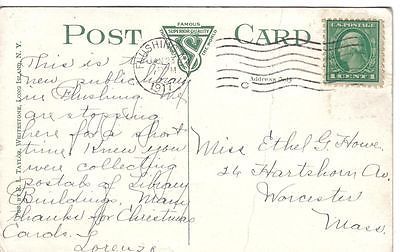 POST CARD
FAMOUS
SUPERIOR QUALITY
THE WORLD
FLUSHING
1917
Address Only
1 CENT 1
PUB. BY R. L. TAYLOR, WHITESTONE, LONG ISLAND, N. Y.
This is the
new public library
in Flushing. We
are stopping
here for a short
time. Knew you
were collecting
postals of Library
Buildings. Many
thanks for Christmas
Cards.
Lorenzo
Miss Ethel G. Howe
26 Hartshorn Av.
Worcester
Mass.